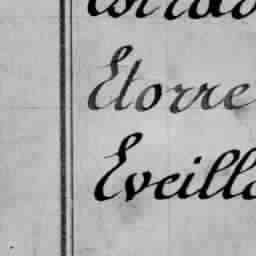 Etorre
Eveilla